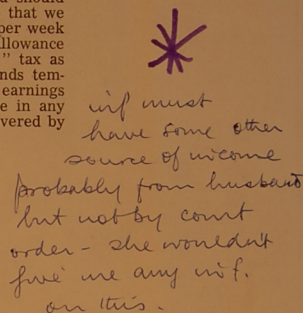 d should
that we
per week
allowance
" tax as
nds tem-
earnings
e in any
vered by
inf must
have some other
source of income
probably from husband
but not by court
order - she wouldn't
give me any inf.
on this.